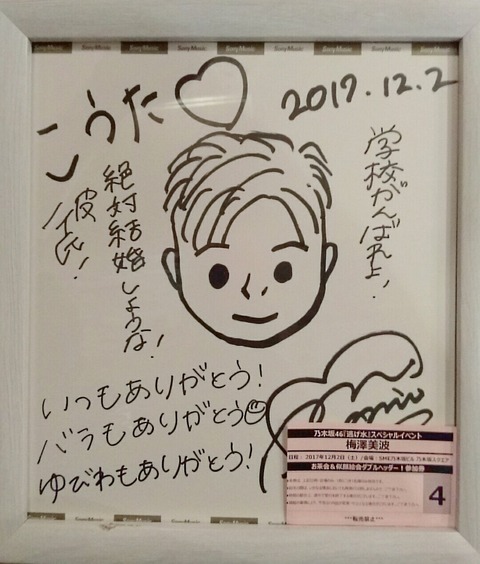 Sony Music Sony Music Sony Music Sony Music
こうた
2017.12.2
学校がんばれよ!
絶対結婚しような!
彼氏!
いつもありがとう!
バラもありがとう
ゆびわもありがとう!
乃木坂46「逃げ水」スペシャルイベント
梅澤美波
日程:2017年12月2日(土)/会場:SME乃木坂ビル 乃木坂スクエア
お茶会&似顔絵会ダブルヘッダー!参加券
4
***転売禁止***